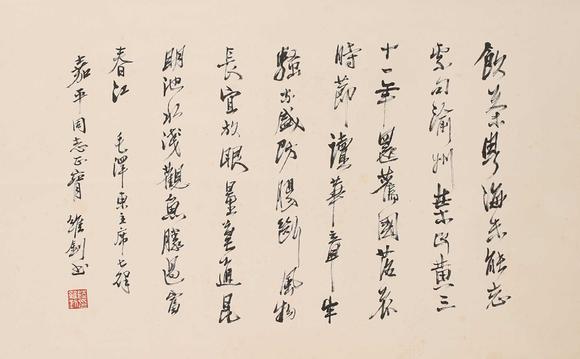 飲茶粵海未能忘
索句渝州葉正黃三
十一年還舊國落花
時節讀華章牢
騷太盛防腸斷風物
長宜放眼量莫道昆
明池水淺觀魚勝過富
春江 毛澤東主席七律
嘉平同志正 維釗書